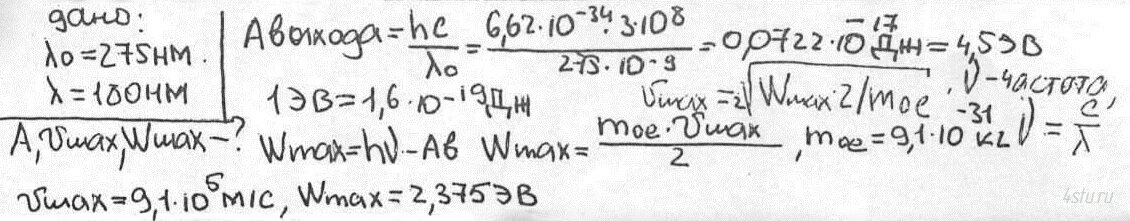 дано:
λ0=275нм.
λ=180нМ
A,Vmax,Wmax-?
Aвыхода=hc/λ0=6,62·10^-34·3·10^8/275·10^-9=0,0722·10^-17Дж=4,5эВ
1эВ=1,6·10^-19Дж
Vmax=2√Wmax·2/moe, ν-частота,
Wmax=hν-Aв Wmax=moe·Vmax/2, moe=9,1·10^-31кг ν=c/λ
Vmax=9,1·10^5м/с, Wmax=2,375эВ
4stu.ru